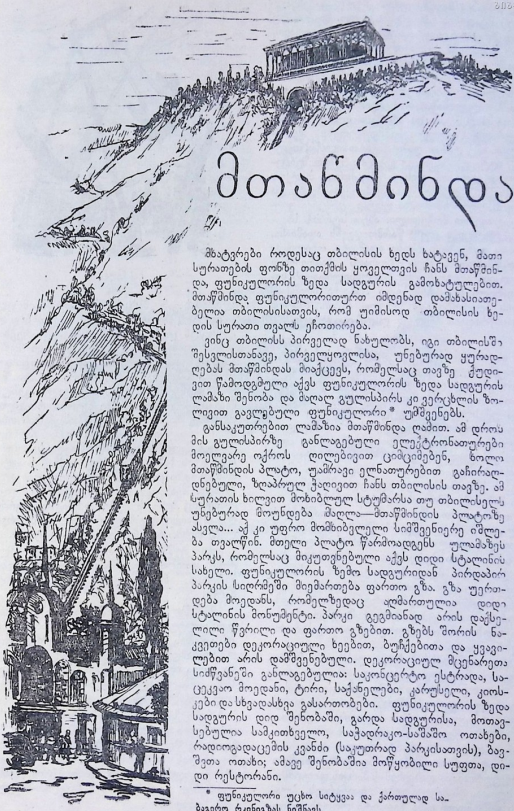 მთაწმინდა
მხატვრები როდესაც თბილისის ხედს ხატავენ, მათი
სურათების ფონზე თითქმის ყოველთვის ჩანს მთაწმინ-
და, ფუნიკულორის ზედა სადგურის გამოხატულებით.
მთაწმინდა ფუნიკულორითურთ იმდენად დამახასიათე-
ბელია თბილისისათვის, რომ უიმისოდ თბილისის ხე-
დის სურათი თვალს ეჩოთირება.
ვინც თბილისს პირველად ნახულობს, იგი თბილისში
შესვლისთანავე, პირველყოვლისა, უნებურად ყურად-
ღებას მთაწმინდას მიაქცევს, რომელსაც თავზე ქუდი-
ვით წამოდგმული აქვს ფუნიკულორის ზედა სადგურის
ლამაზი შენობა და მაღალ გულისპირს კი ვერცხლის ზო-
ლივით გავლებული ფუნიკულორი* უმშვენებს.
განსაკუთრებით ლამაზია მთაწმინდა ღამით. ამ დროს
მის გულისპირზე განლაგებული ელექტრონათურები
მოელვარე ოქროს ღილებივით ციმციმებენ, ხოლო
მთაწმინდის პლატო, უამრავი ელნათურებით გაჩირაღ-
დნებული, ზღაპრულ ჭაღივით ჩანს თბილისის თავზე. ამ
სურათის ხილვით მოხიბლულ სტუმარსა თუ თბილისელს
უნებურად მოუნდება მაღლა—მთაწმინდის პლატოზე
ასვლა... აქ კი უფრო მომხიბვლელი სიმშვენიერე იშლე-
ბა თვალწინ. მთელი პლატო წარმოადგენს ულამაზეს
პარკს, რომელსაც მიკუთვნებული აქვს დიდი სტალინის
სახელი. ფუნიკულორის ზემო სადგურიდან პირდაპირ
პარკის სიღრმეში მიემართება ფართო გზა. გზა უერთ-
დება მოედანს, რომელზედაც აღმართულია დიდი
სტალინის მონუმენტი. პარკი გეგმიანად არის დაქსე-
ლილი წვრილი და ფართო გზებით. გზებს შორის ნა-
კვეთები დეკორაციული ხეებით, ბუჩქებითა და ყვავი-
ლებით არის დამშვენებული. დეკორაციულ მცენარეთა
სიმწვანეში განლაგებულია: საკონცერტო ესტრადა, სა-
ცეკვაო მოედანი, ტირი, საქანელები, კარუსელი, კიოს-
კები და სხვადასხვა გასართობები. ფუნიკულორის ზედა
სადგურის დიდ შენობაში, გარდა სადგურისა, მოთავ-
სებულია სამკითხველო, საჭადრაკო-საშაშო ოთახები,
რადიოგადაცემის კვანძი (საკუთრად პარკისათვის), ბავ-
შვთა ოთახი; ამავე შენობაშია მოწყობილი სუფთა, დი-
დი რესტორანი.
* ფუნიკულორი უცხო სიტყვაა და ქართულად სა-
ბაგირო რკინიგზას ნიშნავს